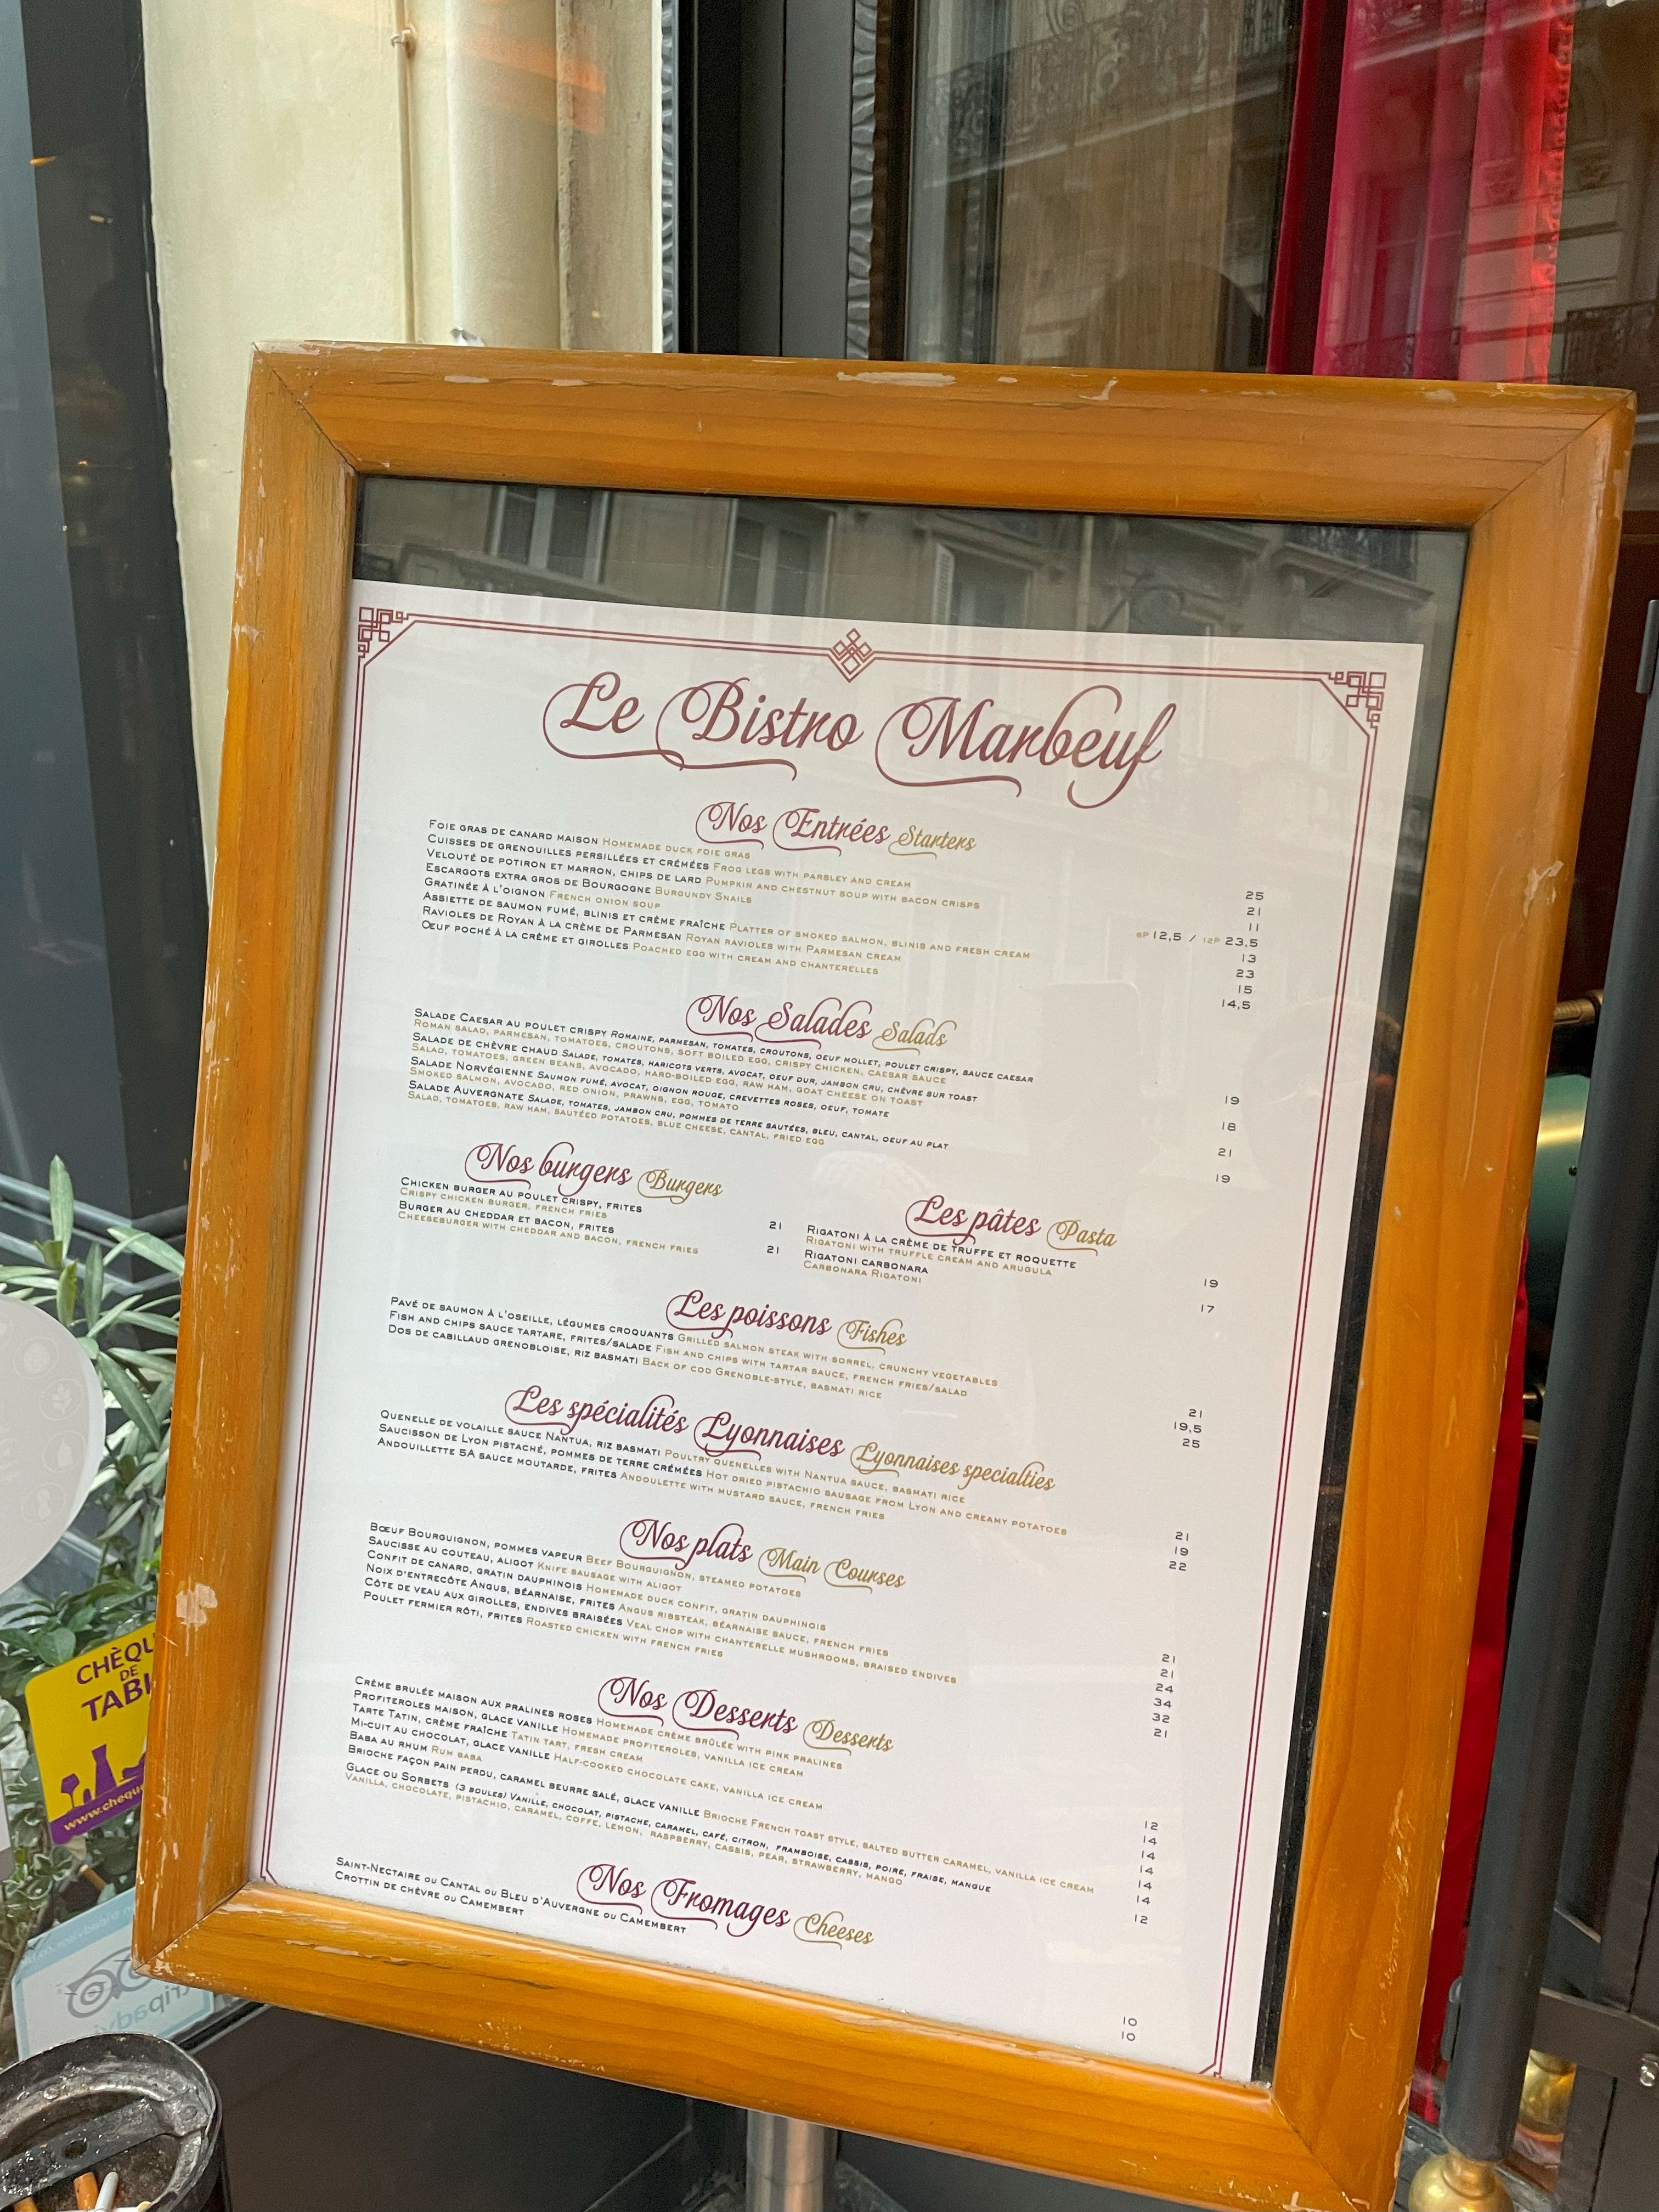 Le Bistro Marbeuf
Nos Entrées Starters
Foie gras de canard maison Homemade duck foie gras 25
Cuisses de grenouilles persillées et crémées Frog legs with parsley and cream 21
Velouté de potiron et marron, chips de lard Pumpkin and chestnut soup with bacon crisps 11
Escargots extra gros de Bourgogne Burgundy Snails 6P 12,5 / 12P 23,5
Gratinée à l'oignon French onion soup 13
Assiette de saumon fumé, blinis et crème fraîche Platter of smoked salmon, blinis and fresh cream 23
Ravioles de Royan à la crème de Parmesan Royan ravioles with Parmesan cream 15
Œuf poché à la crème et girolles Poached egg with cream and chanterelles 14,5
Nos Salades Salads
Salade Caesar au poulet crispy Romaine, parmesan, tomates, croutons, oeuf mollet, poulet crispy, sauce caesar
Roman salad, parmesan, tomatoes, croutons, soft boiled egg, crispy chicken, caesar sauce 19
Salade de chèvre chaud Salade, tomates, haricots verts, avocat, oeuf dur, jambon cru, chèvre sur toast
Salad, tomatoes, green beans, avocado, hard-boiled egg, raw ham, goat cheese on toast 18
Salade Norvégienne Saumon fumé, avocat, oignon rouge, crevettes roses, oeuf, tomate
Smoked salmon, avocado, red onion, prawns, egg, tomato 21
Salade Auvergnate Salade, tomates, jambon cru, pommes de terre sautées, bleu, cantal, oeuf au plat
Salad, tomatoes, raw ham, sautéed potatoes, blue cheese, cantal, fried egg 19
Nos burgers Burgers
Chicken burger au poulet crispy, frites
Crispy chicken burger, french fries 21
Burger au cheddar et bacon, frites
Cheeseburger with cheddar and bacon, french fries 21
Les pâtes Pasta
Rigatoni à la crème de truffe et roquette
Rigatoni with truffle cream and arugula 19
Rigatoni carbonara
Carbonara Rigatoni 17
Les poissons Fishes
Pavé de saumon à l'oseille, légumes croquants Grilled salmon steak with sorrel, crunchy vegetables 21
Fish and chips sauce tartare, frites/salade Fish and chips with tartar sauce, french fries/salad 19,5
Dos de cabillaud grenobloise, riz basmati Back of cod Grenoble-style, basmati rice 25
Les spécialités Lyonnaises Lyonnaises specialties
Quenelle de volaille sauce Nantua, riz basmati Poultry quenelles with Nantua sauce, basmati rice 21
Saucisson de Lyon pistaché, pommes de terre crémées Hot dried pistachio sausage from Lyon and creamy potatoes 19
Andouillette 5A sauce moutarde, frites Andoulette with mustard sauce, french fries 22
Nos plats Main Courses
Bœuf Bourguignon, pommes vapeur Beef Bourguignon, steamed potatoes 21
Saucisse au couteau, aligot Knife sausage with aligot 21
Confit de canard, gratin dauphinois Homemade duck confit, gratin dauphinois 24
Noix d'entrecôte Angus, béarnaise, frites Angus ribsteak, béarnaise sauce, french fries 34
Côte de veau aux girolles, endives braisées Veal chop with chanterelle mushrooms, braised endives 32
Poulet fermier rôti, frites Roasted chicken with french fries 21
Nos Desserts Desserts
Crème brulée maison aux pralines roses Homemade crème brûlée with pink pralines 12
Profiteroles maison, glace vanille Homemade profiteroles, vanilla ice cream 14
Tarte Tatin, crème fraîche Tatin tart, fresh cream 14
Mi-cuit au chocolat, glace vanille Half-cooked chocolate cake, vanilla ice cream 14
Baba au rhum Rum baba 14
Brioche façon pain perdu, caramel beurre salé, glace vanille Brioche French toast style, salted butter caramel, vanilla ice cream 14
Glace ou Sorbets (3 boules) Vanille, chocolat, pistache, caramel, café, citron, framboise, cassis, poire, fraise, mangue
Vanilla, chocolate, pistachio, caramel, coffe, lemon, raspberry, cassis, pear, strawberry, mango 12
Nos Fromages Cheeses
Saint-Nectaire ou Cantal ou Bleu d'Auvergne ou Camembert 10
Crottin de chèvre ou Camembert 10
CHÈQU
DE
TABL
www.cheque